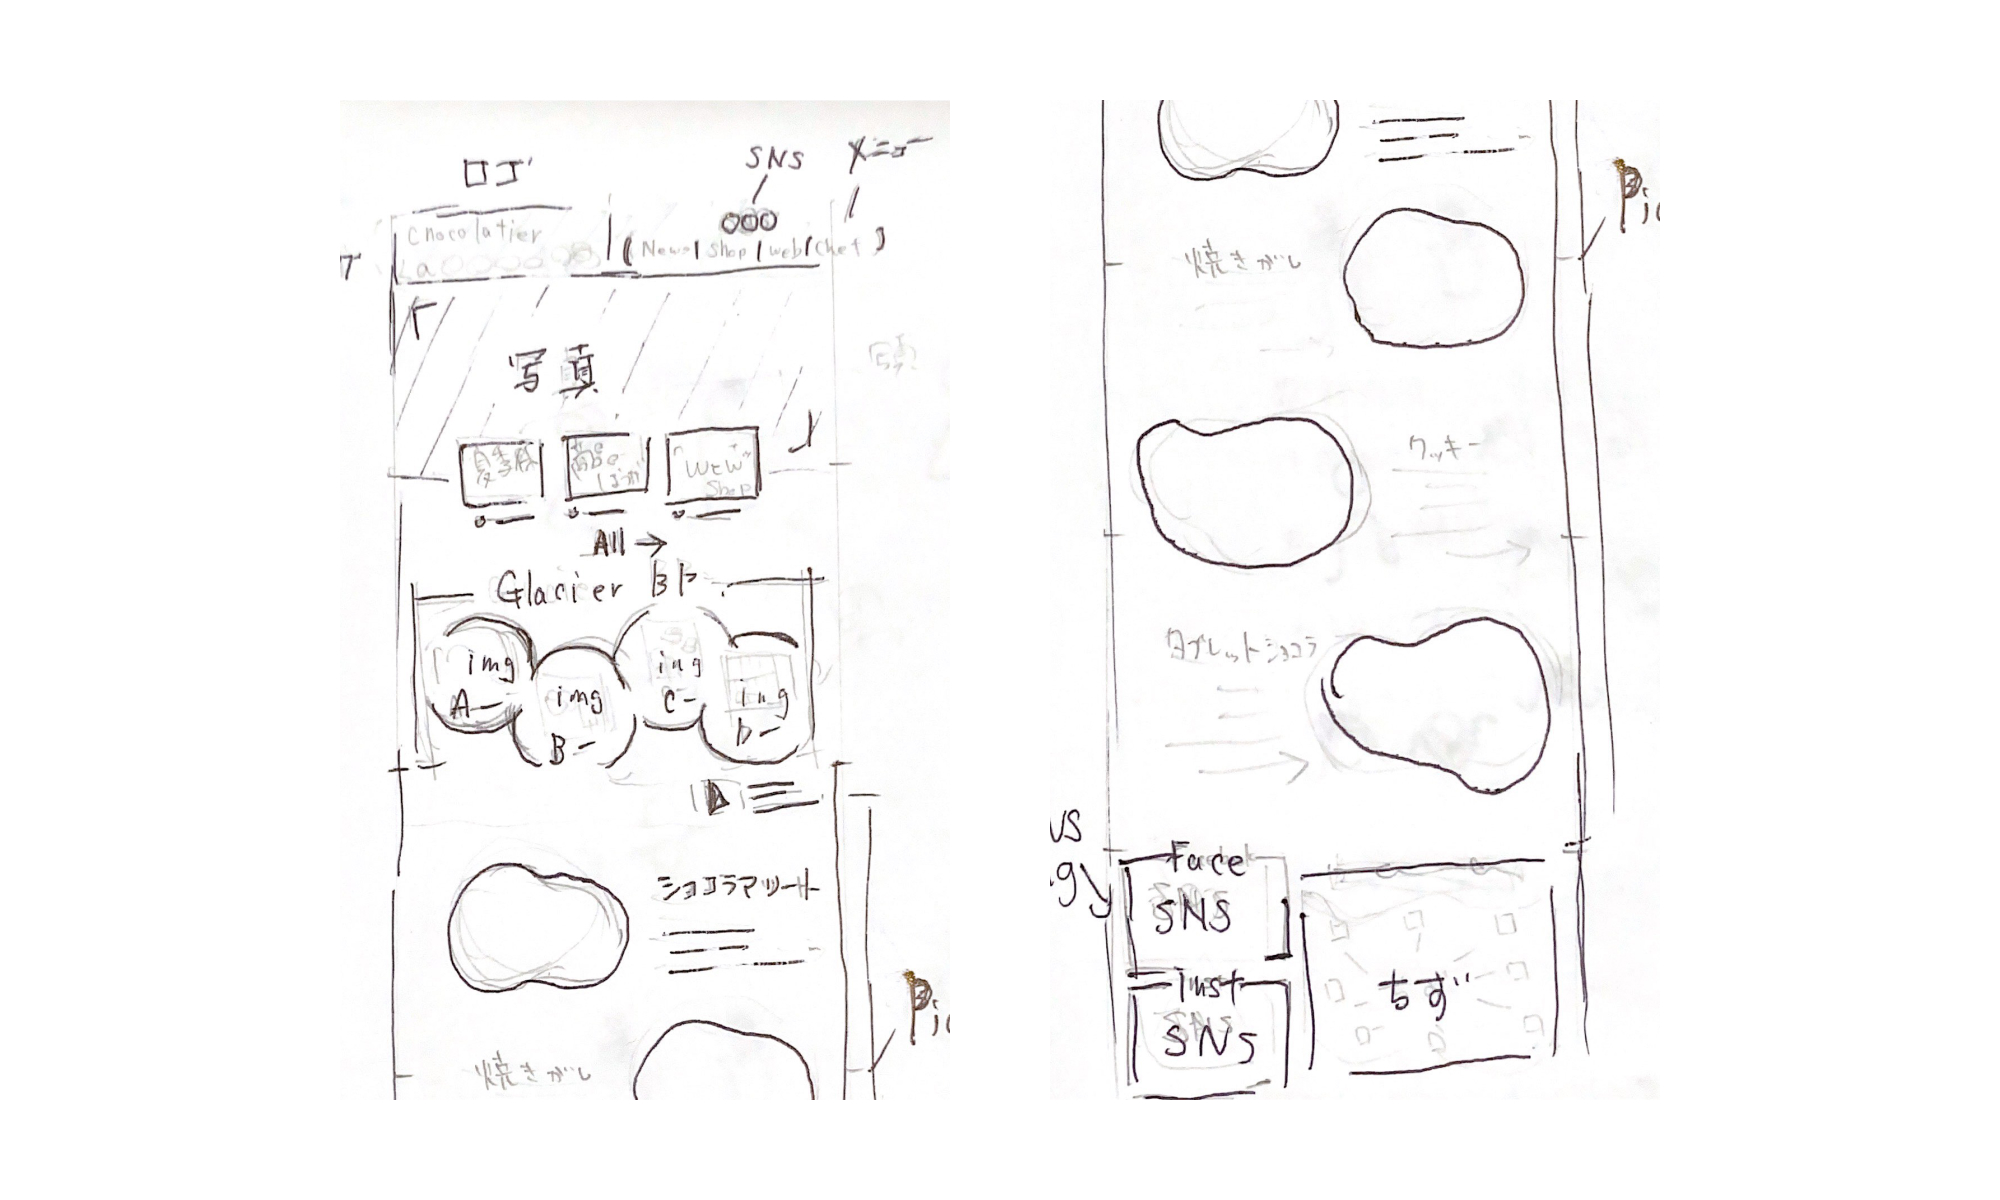 ロゴ
SNS
メニュー
Chocolatier
La
News / Shop / web / Chef
写真
夏季感
Shop
All →
Glacier
img
A
img
B
img
C
img
D
ショコラアソート
焼きがし
Pic
焼きがし
Pic
クッキー
タブレットショコラ
Face
SNS
Inst
SNS
ちず